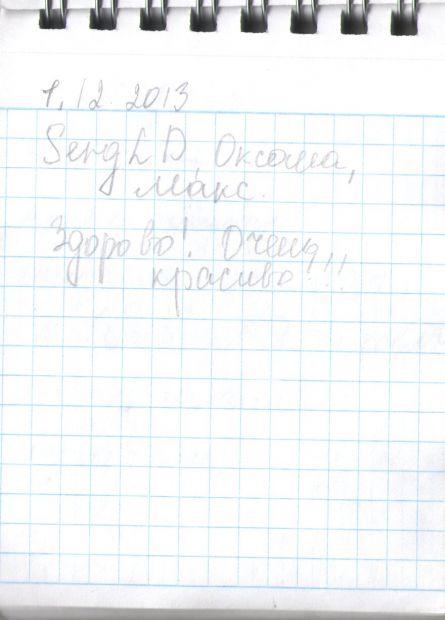 1.12.2013
SergLD, Оксана,
Макс.
Здорово! Очень
красиво!!!